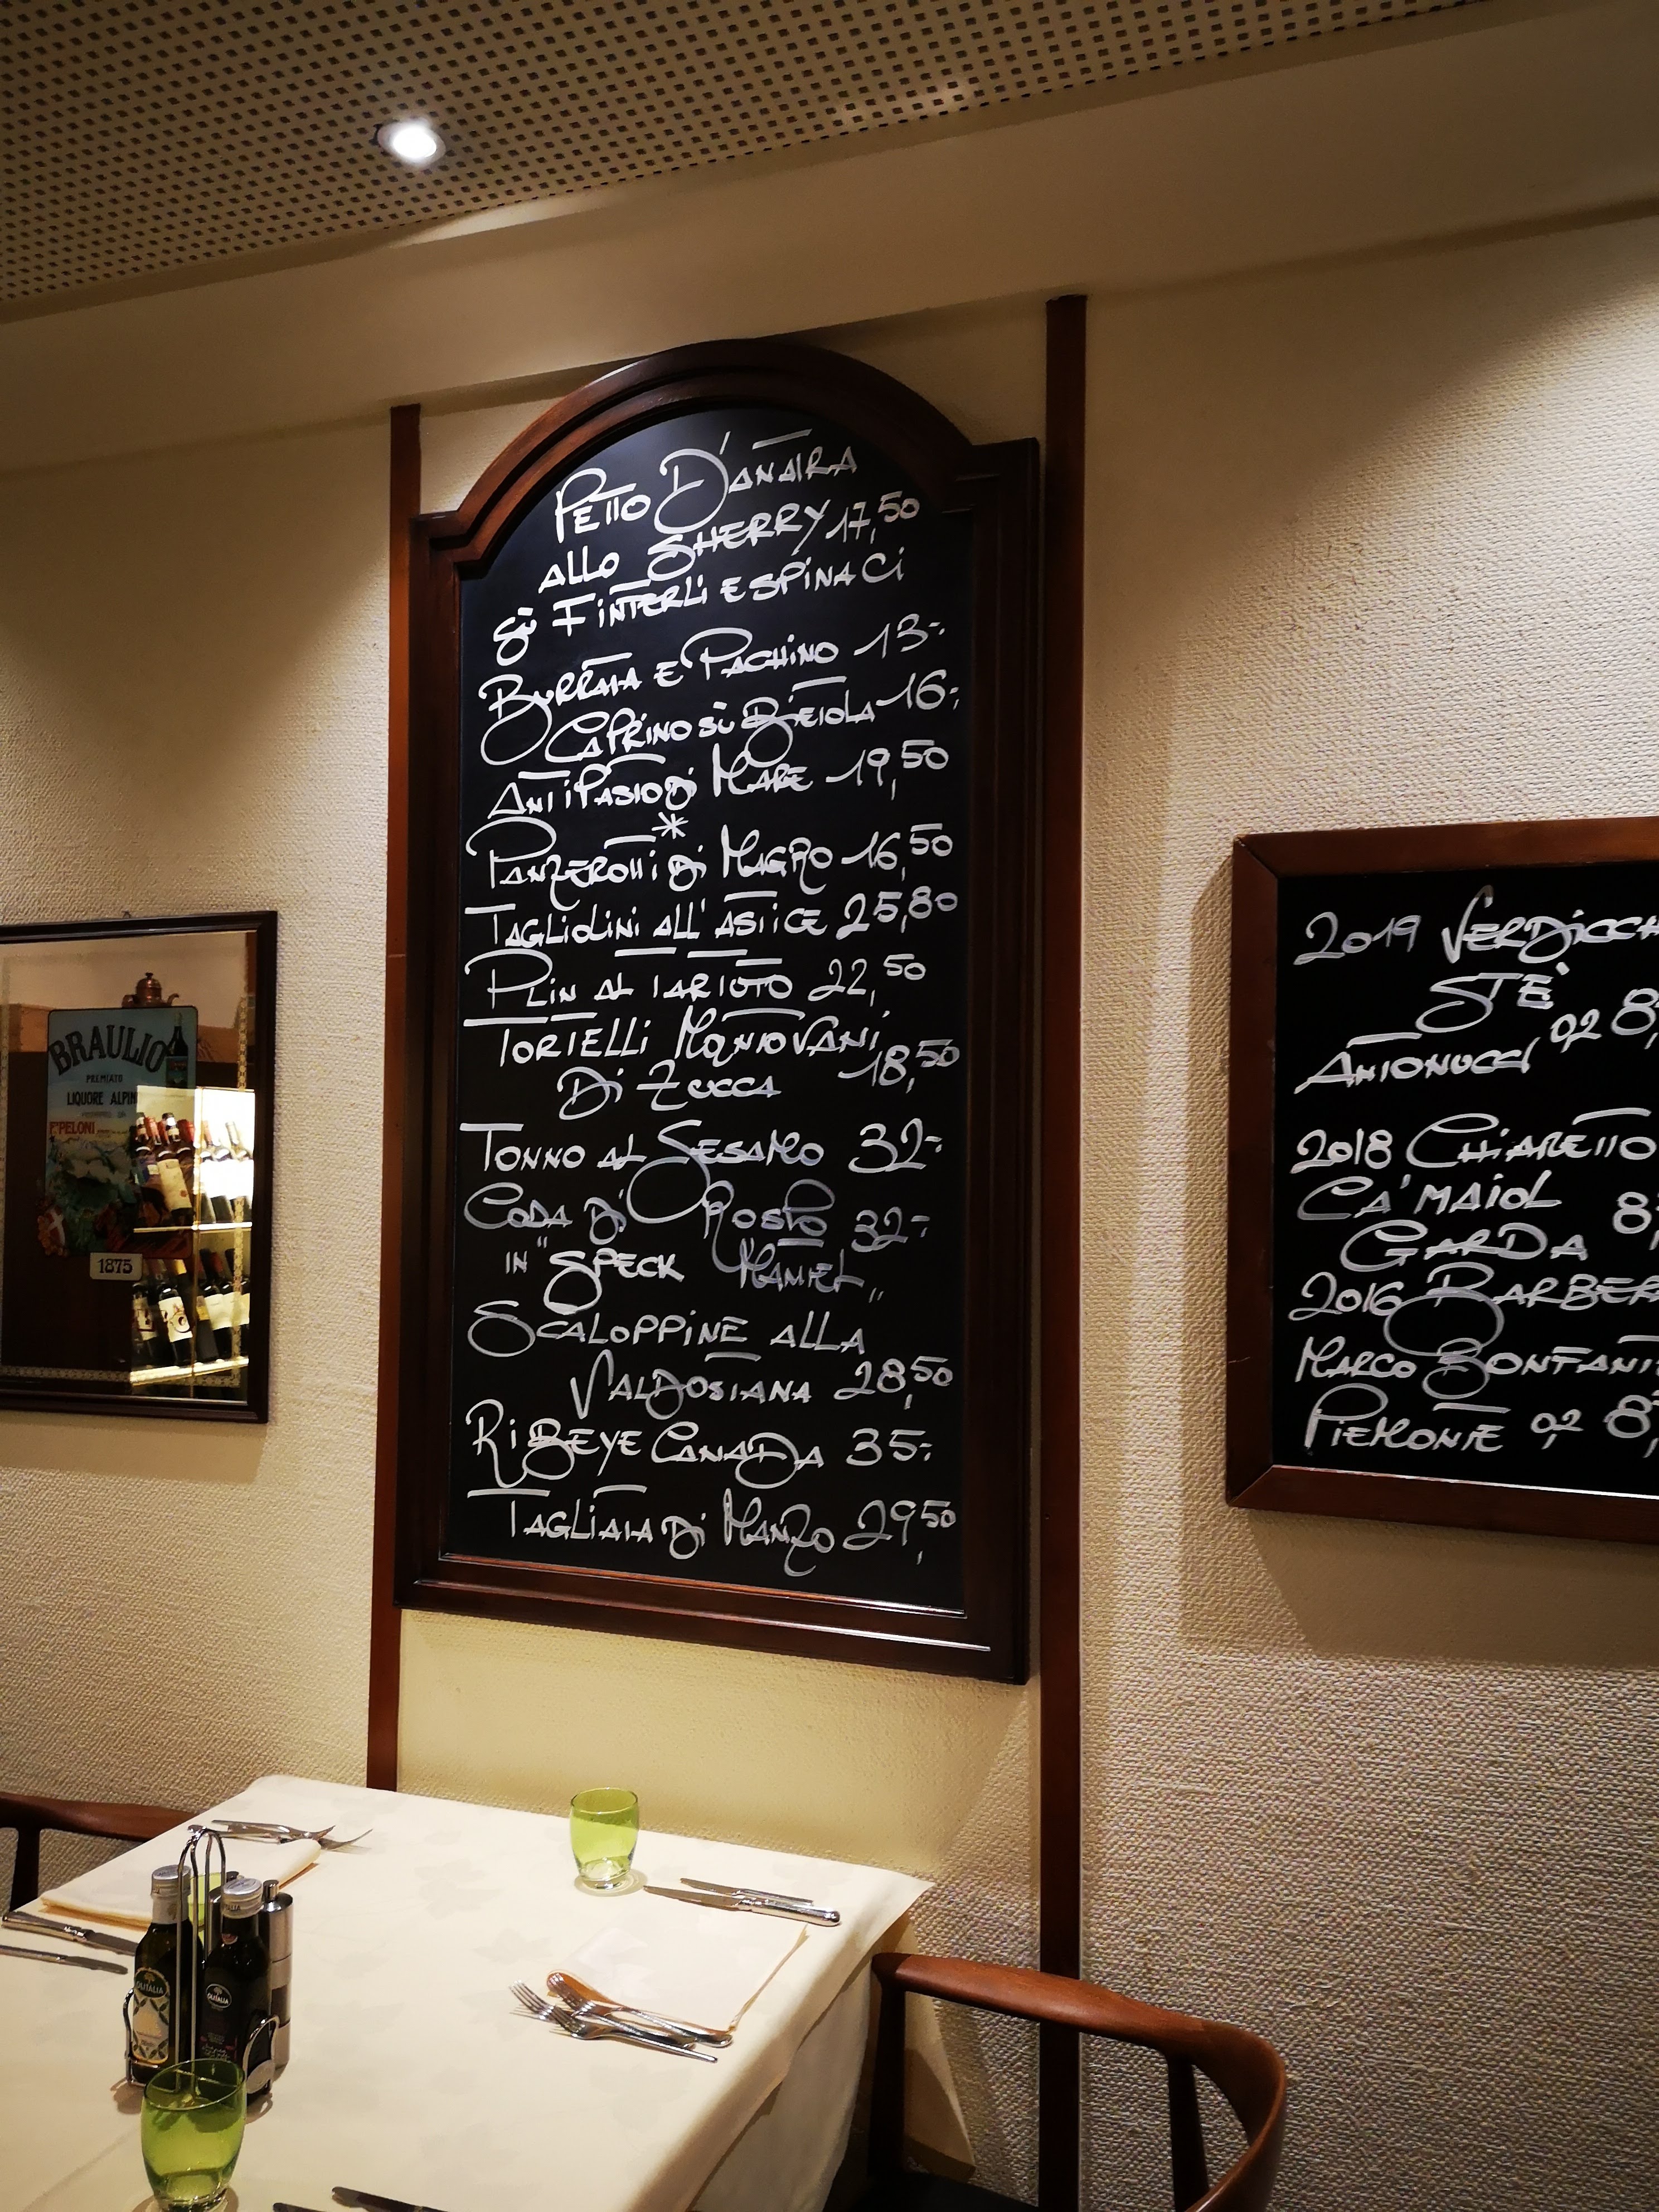 PETTO D'ANATRA
ALLO SHERRY 17,50
SÙ FINTERLI E SPINACI
BURRATA E PACHINO 13.-
CAPRINO SÙ BIETOLA 16.-
ANTIPASTO DI MARE 19,50
*
PANZEROTTI DI MAGRO 16,50
TAGLIOLINI ALL'ASTICE 25,80
PLIN AL TARTUTO 22,50
TORTELLI MANTOVANI
DI ZUCCA 18,50
TONNO AL SESAMO 32.-
CODA DI ROSPO 32.-
IN "SPECK MANTEL"
SCALOPPINE ALLA
VALDOSTANA 28,50
RIBEYE CANADA 35.-
TAGLIATA DI MANZO 29,50
2019 VERDICCH
STÈ
ANTONUCCI 0,2 8,
2018 CHIARETTO
CA'MAIOL 8,
GARDA
2016 BARBER
MARCO BONFANT
PIEMONTE 0,2 8,
BRAULIO
PREMIATO
LIQUORE ALPIN
PELONI
1875
OLITALIA
OLITALIA